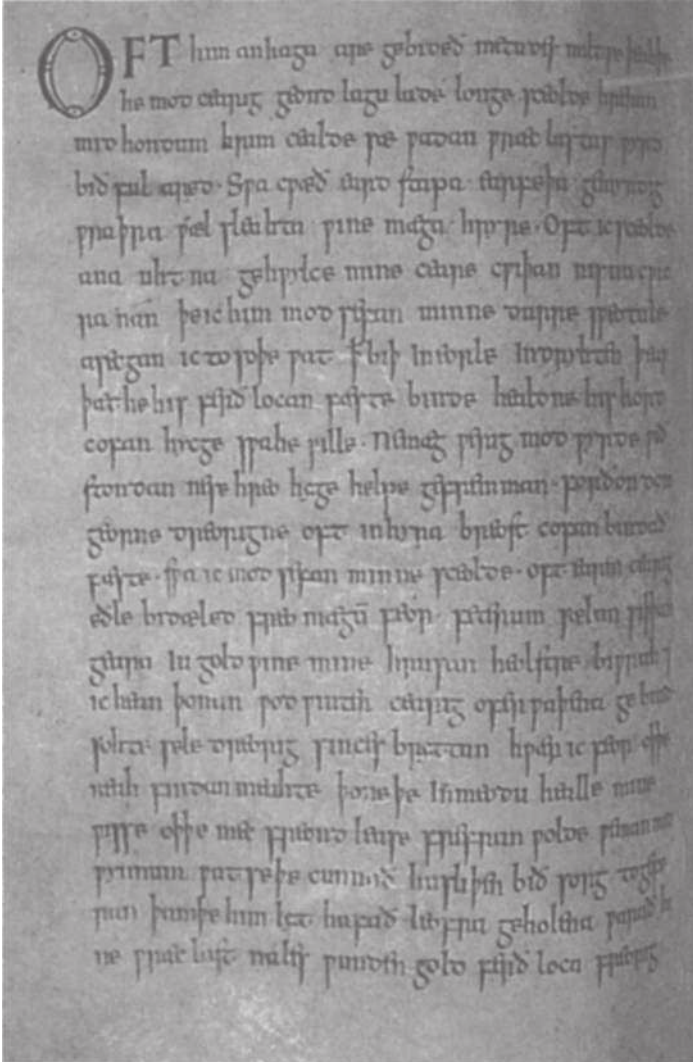 OFT him anhaga are gebideð metudes miltse þeahþe
he mod cearig geond lagu lade longe sceolde hreran
mid hondum hrim cealde sæ ƿadan ƿræc lastas ƿyrd
bið ful aræd · Sƿa cƿæð eard stapa earfeþa gemyndig
ƿraþra ƿæl sleahta ƿine mæga hryre · Oft ic sceolde
ana uhtna gehƿylce mine ceare cƿiþan nis nu cƿic
ra nan þe ic him mod sefan minne durre sƿeotule
asecgan ic to soþe ƿat þ̄ biþ in eorle indryhten þeaƿ
þæt he his ferð locan fæste binde healdne his hord
cofan hycge sƿa he ƿille · Ne mæg ƿerig mod ƿyrde ƿið
stondan ne se hreo hyge helpe gefremman · forðon dom
georne dreorigne oft in hyra breost cofan bindað
fæste · sƿa ic mod sefan minne sceolde · oft earm cearig
eðle bidæled freo mægū feor feterum sælan siþþan
geara iu gold ƿine mine hrusan heolstre biƿrah ⁊
ic hean þonan ƿod ƿinter cearig ofer ƿaþena gebind
sohte sele dreorig sinces bryttan hƿær ic feor oþþe
neah findan meahte þone þe in meodu healle mine
ƿisse oþþe mec freond lease frefran ƿolde ƿeman mid
ƿynnum ƿat se þe cunnað hu sliþen bið sorg to gefe
ran þam þe him lyt hafað leofra geholena ƿarað hi
ne ƿræc last nales ƿunden gold ferð loca freorig